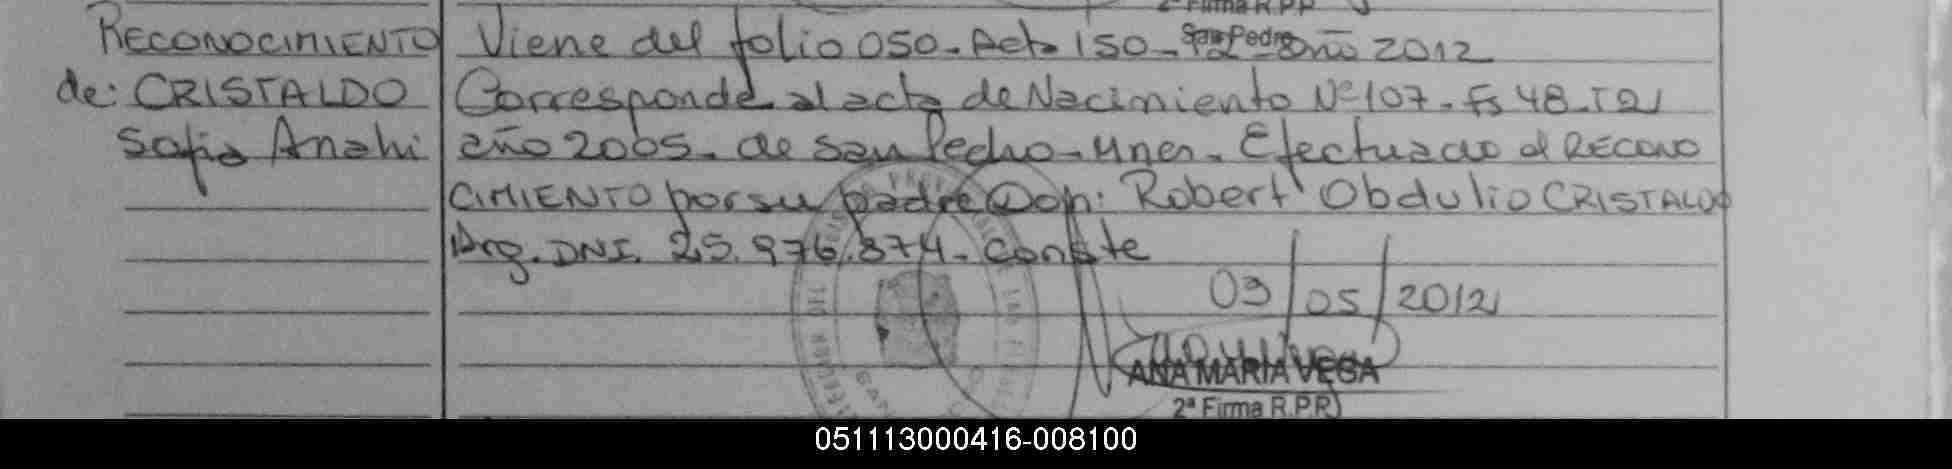 2ª Firma R.P.P
RECONOCIMIENTO Viene del folio 050. Acta 150. San Pedro año 2012
de: CRISTALDO Corresponde al acta de Nacimiento Nº 107. Fs 48. T2
Sofia Anahi año 2005. de San Pedro. Mnes. Efectuado el RECONO
CIMIENTO por su padre Don: Robert Obdulio CRISTALDO
Arg. DNI. 25.976.874. Conste
03/05/2012
ANA MARIA VEGA
2ª Firma R.P.P
051113000416-008100